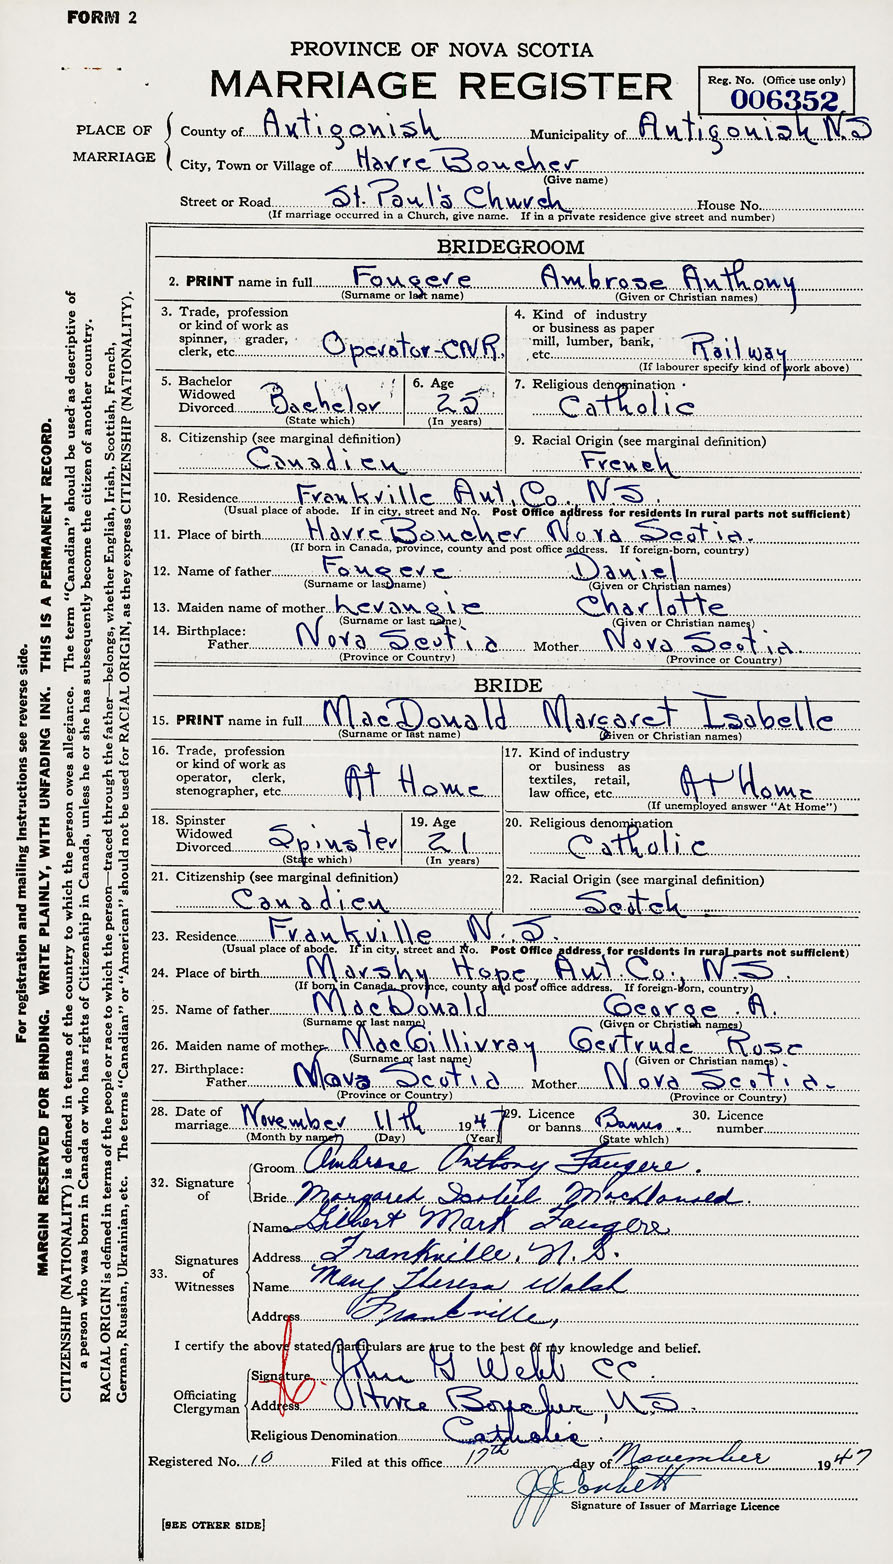 FORM 2
PROVINCE OF NOVA SCOTIA
MARRIAGE REGISTER
Reg. No. (Office use only)
006352
PLACE OF MARRIAGE
County of Antigonish Municipality of Antigonish N.S
City, Town or Village of Havre Boucher
(Give name)
Street or Road St. Paul's Church House No.
(If marriage occurred in a Church, give name. If in a private residence give street and number)
BRIDEGROOM
2. PRINT name in full Fougere Ambrose Anthony
(Surname or last name) (Given or Christian names)
3. Trade, profession or kind of work as spinner, grader, clerk, etc. Operator-CNR.
4. Kind of industry or business as paper mill, lumber, bank, etc. Railway
(If labourer specify kind of work above)
5. Bachelor Widowed Divorced Bachelor
(State which)
6. Age 25
(In years)
7. Religious denomination
Catholic
8. Citizenship (see marginal definition)
Canadien
9. Racial Origin (see marginal definition)
French
10. Residence Frankville Ant. Co., N.S.
(Usual place of abode. If in city, street and No. Post Office address for residents in rural parts not sufficient)
11. Place of birth Havre Boucher Nova Scotia.
(If born in Canada, province, county and post office address. If foreign-born, country)
12. Name of father Fougere Daniel
(Surname or last name) (Given or Christian names)
13. Maiden name of mother Levangie Charlotte
(Surname or last name) (Given or Christian names)
14. Birthplace: Father Nova Scotia Mother Nova Scotia.
(Province or Country) (Province or Country)
BRIDE
15. PRINT name in full MacDonald Margaret Isabelle
(Surname or last name) (Given or Christian names)
16. Trade, profession or kind of work as operator, clerk, stenographer, etc. At Home
17. Kind of industry or business as textiles, retail, law office, etc. At Home
(If unemployed answer "At Home")
18. Spinster Widowed Divorced Spinster
(State which)
19. Age 21
(In years)
20. Religious denomination
Catholic
21. Citizenship (see marginal definition)
Canadien
22. Racial Origin (see marginal definition)
Scotch
23. Residence Frankville N.S.
(Usual place of abode. If in city, street and No. Post Office address for residents in rural parts not sufficient)
24. Place of birth Marshy Hope, Ant. Co., N.S.
(If born in Canada, province, county and post office address. If foreign-born, country)
25. Name of father MacDonald George A.
(Surname or last name) (Given or Christian names)
26. Maiden name of mother MacGillivray Gertrude Rose
(Surname or last name) (Given or Christian names)
27. Birthplace: Father Nova Scotia Mother Nova Scotia.
(Province or Country) (Province or Country)
28. Date of marriage November 11th 1947
(Month by name) (Day) (Year)
29. Licence or banns Banns.
(State which)
30. Licence number
32. Signature of
Groom Ambrose Anthony Fougere.
Bride Margaret Isobel MacDonald.
33. Signatures of Witnesses
Name Gilbert Mark Fougere
Address Frankville, N.S.
Name Mary Theresa Walsh
Address Frankville,
I certify the above stated particulars are true to the best of my knowledge and belief.
Officiating Clergyman
Signature John G Webb CC.
Address Havre Boucher, N.S.
Religious Denomination Catholic
Registered No. 10 Filed at this office 17th day of November 1947
J J Corbett
Signature of Issuer of Marriage Licence
[SEE OTHER SIDE]
For registration and mailing instructions see reverse side.
MARGIN RESERVED FOR BINDING. WRITE PLAINLY, WITH UNFADING INK. THIS IS A PERMANENT RECORD.
CITIZENSHIP (NATIONALITY) is defined in terms of the country to which the person owes allegiance. The term "Canadian" should be used as descriptive of
a person who was born in Canada or who has rights of Citizenship in Canada, unless he or she has subsequently become the citizen of another country.
RACIAL ORIGIN is defined in terms of the people or race to which the person—traced through the father—belongs, whether English, Irish, Scottish, French,
German, Russian, Ukrainian, etc. The terms "Canadian" or "American" should not be used for RACIAL ORIGIN, as they express CITIZENSHIP (NATIONALITY).